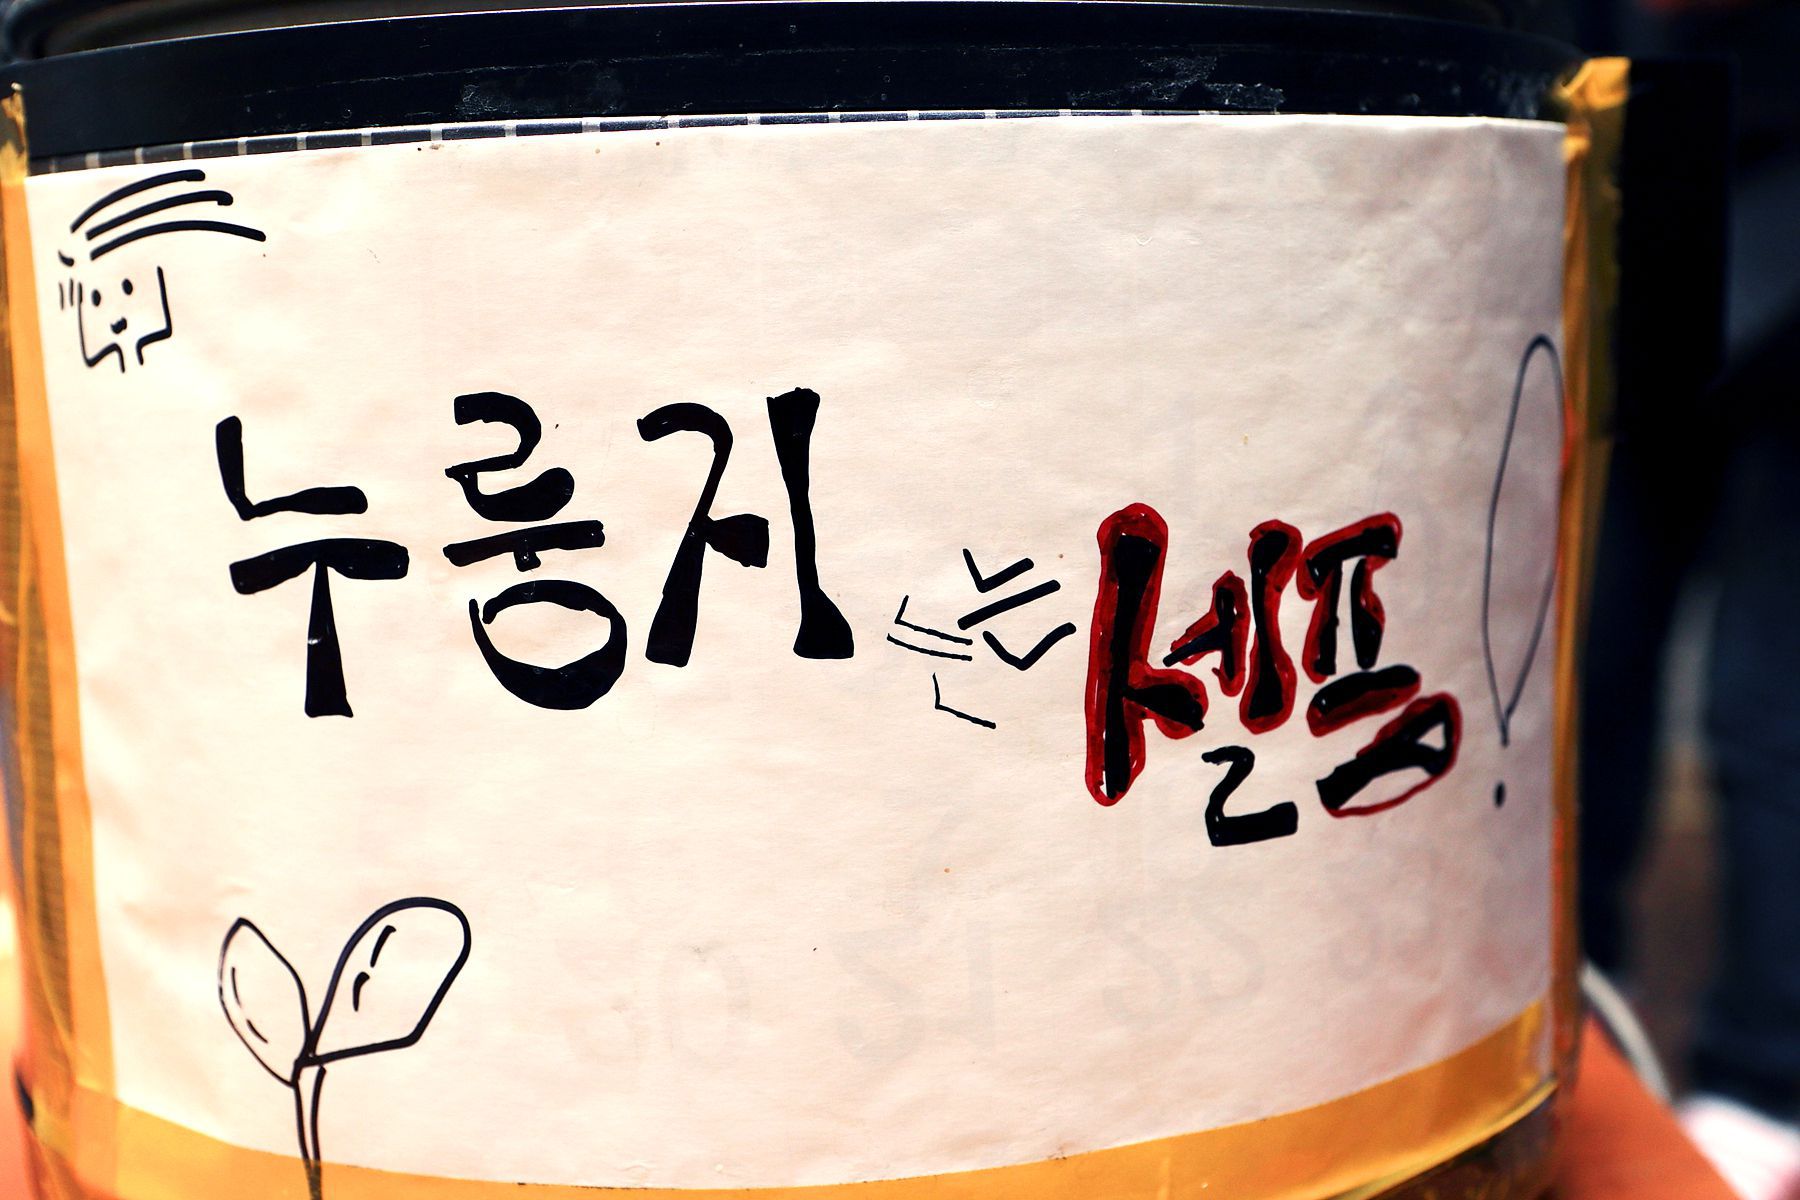 누룽지는 셀프!